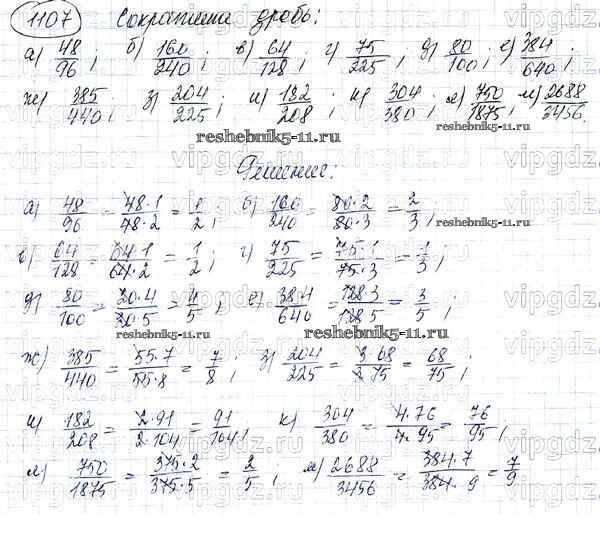 1107 Сократите дробь:
а) 48/96; б) 160/240; в) 64/128; г) 75/225; д) 80/100; е) 384/640;
ж) 385/440; з) 204/225; и) 182/208; к) 304/380; л) 750/1875; м) 2688/3456.
reshebnik5-11.ru
Решение:
а) 48/96 = 48·1/48·2 = 1/2; б) 160/240 = 80·2/80·3 = 2/3;
в) 64/128 = 64·1/64·2 = 1/2; г) 75/225 = 75·1/75·3 = 1/3;
д) 80/100 = 20·4/20·5 = 4/5; е) 384/640 = 128·3/128·5 = 3/5;
ж) 385/440 = 55·7/55·8 = 7/8; з) 204/225 = 3·68/3·75 = 68/75;
и) 182/208 = 2·91/2·104 = 91/104; к) 304/380 = 4·76/4·95 = 76/95;
л) 750/1875 = 375·2/375·5 = 2/5; м) 2688/3456 = 384·7/384·9 = 7/9